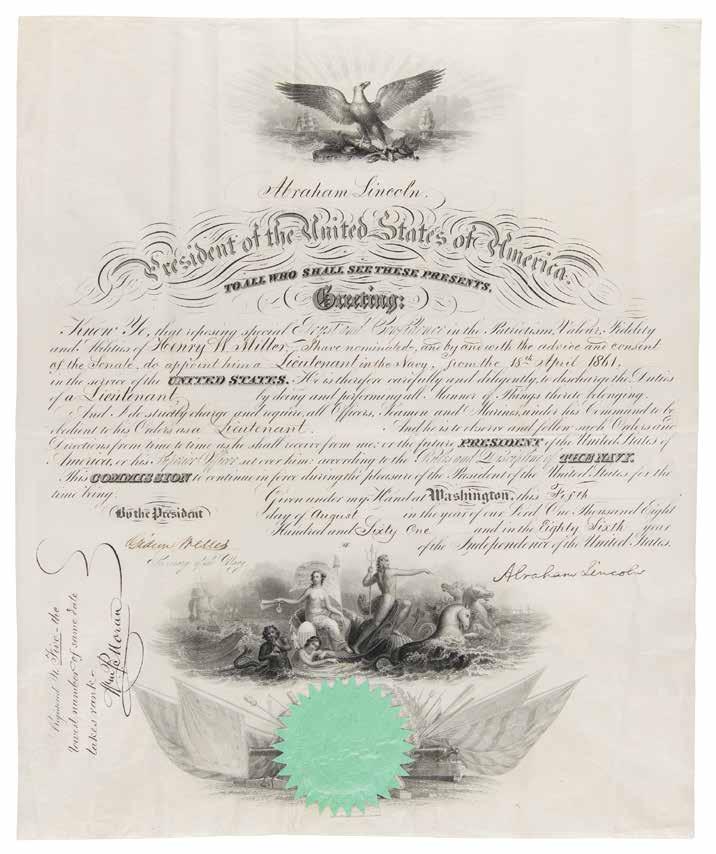 Abraham Lincoln.
President of the United States of America.
TO ALL WHO SHALL SEE THESE PRESENTS,
Greeting:
Know Ye, that reposing special Trust and Confidence in the Patriotism, Valour, Fidelity
and Abilities of Henry W. Miller, I have nominated, and by and with the advice and consent
of the Senate, do appoint him a Lieutenant in the Navy, from the 18th April 1861,
in the service of the UNITED STATES. He is therefore carefully and diligently, to discharge the Duties
of a Lieutenant, by doing and performing all Manner of Things thereto belonging.
And I do strictly charge and require, all Officers, Seamen and Marines, under his Command to be
obedient to his Orders as a Lieutenant. And he is to observe and follow such Orders and
Directions from time to time as he shall receive from me, or the future PRESIDENT of the United States of
America, or his Superior Officer set over him, according to the Rules and Discipline of THE NAVY.
This COMMISSION to continue in force during the pleasure of the President of the United States for the
time being. Given under my Hand at Washington, this Fifth
By the President day of August in the year of our Lord One Thousand Eight
Hundred and Sixty One and in the Eighty Sixth year
of the Independence of the United States.
Gideon Welles
Secretary of the Navy
Abraham Lincoln
Registered No Five - the
lowest number of same date
takes rank.